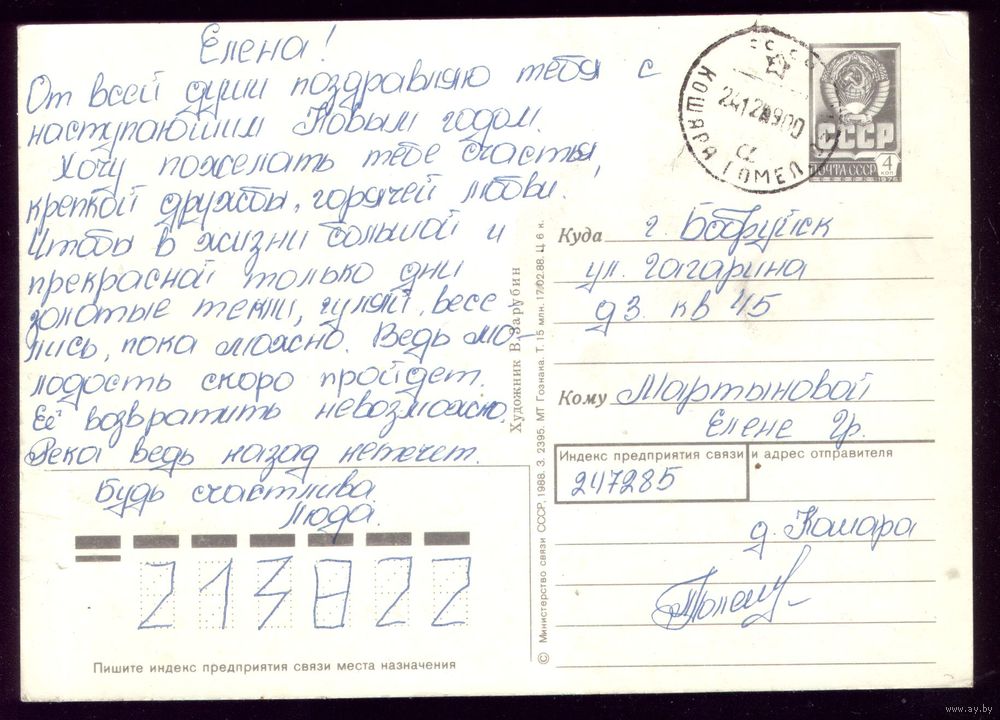 Елена!
От всей души поздравляю тебя с
наступающим Новым годом.
Хочу пожелать тебе счастья
крепкой дружбы, горячей любви!
Чтобы в жизни большой и
прекрасной только дни
золотые текли, гуляй, весе
лись, пока можно. Ведь мо-
лодость скоро пройдет.
Её возвратить невозможно.
Река ведь назад нетечет.
Будь счастлива.
Люда.
213822
Пишите индекс предприятия связи места назначения
Художник В. Зарубин
© Министерство связи СССР, 1988. З. 2395. МТ Гознака. Т. 15 млн. 17/02.88. Ц. 6 к.
СССР
ПОЧТА СССР
4
КОП
Куда г. Бобруйск
ул. Гагарина
д3. кв 45
Кому Мартыновой
Елене Гр.
Индекс предприятия связи и адрес отправителя
247285
www.ay.by